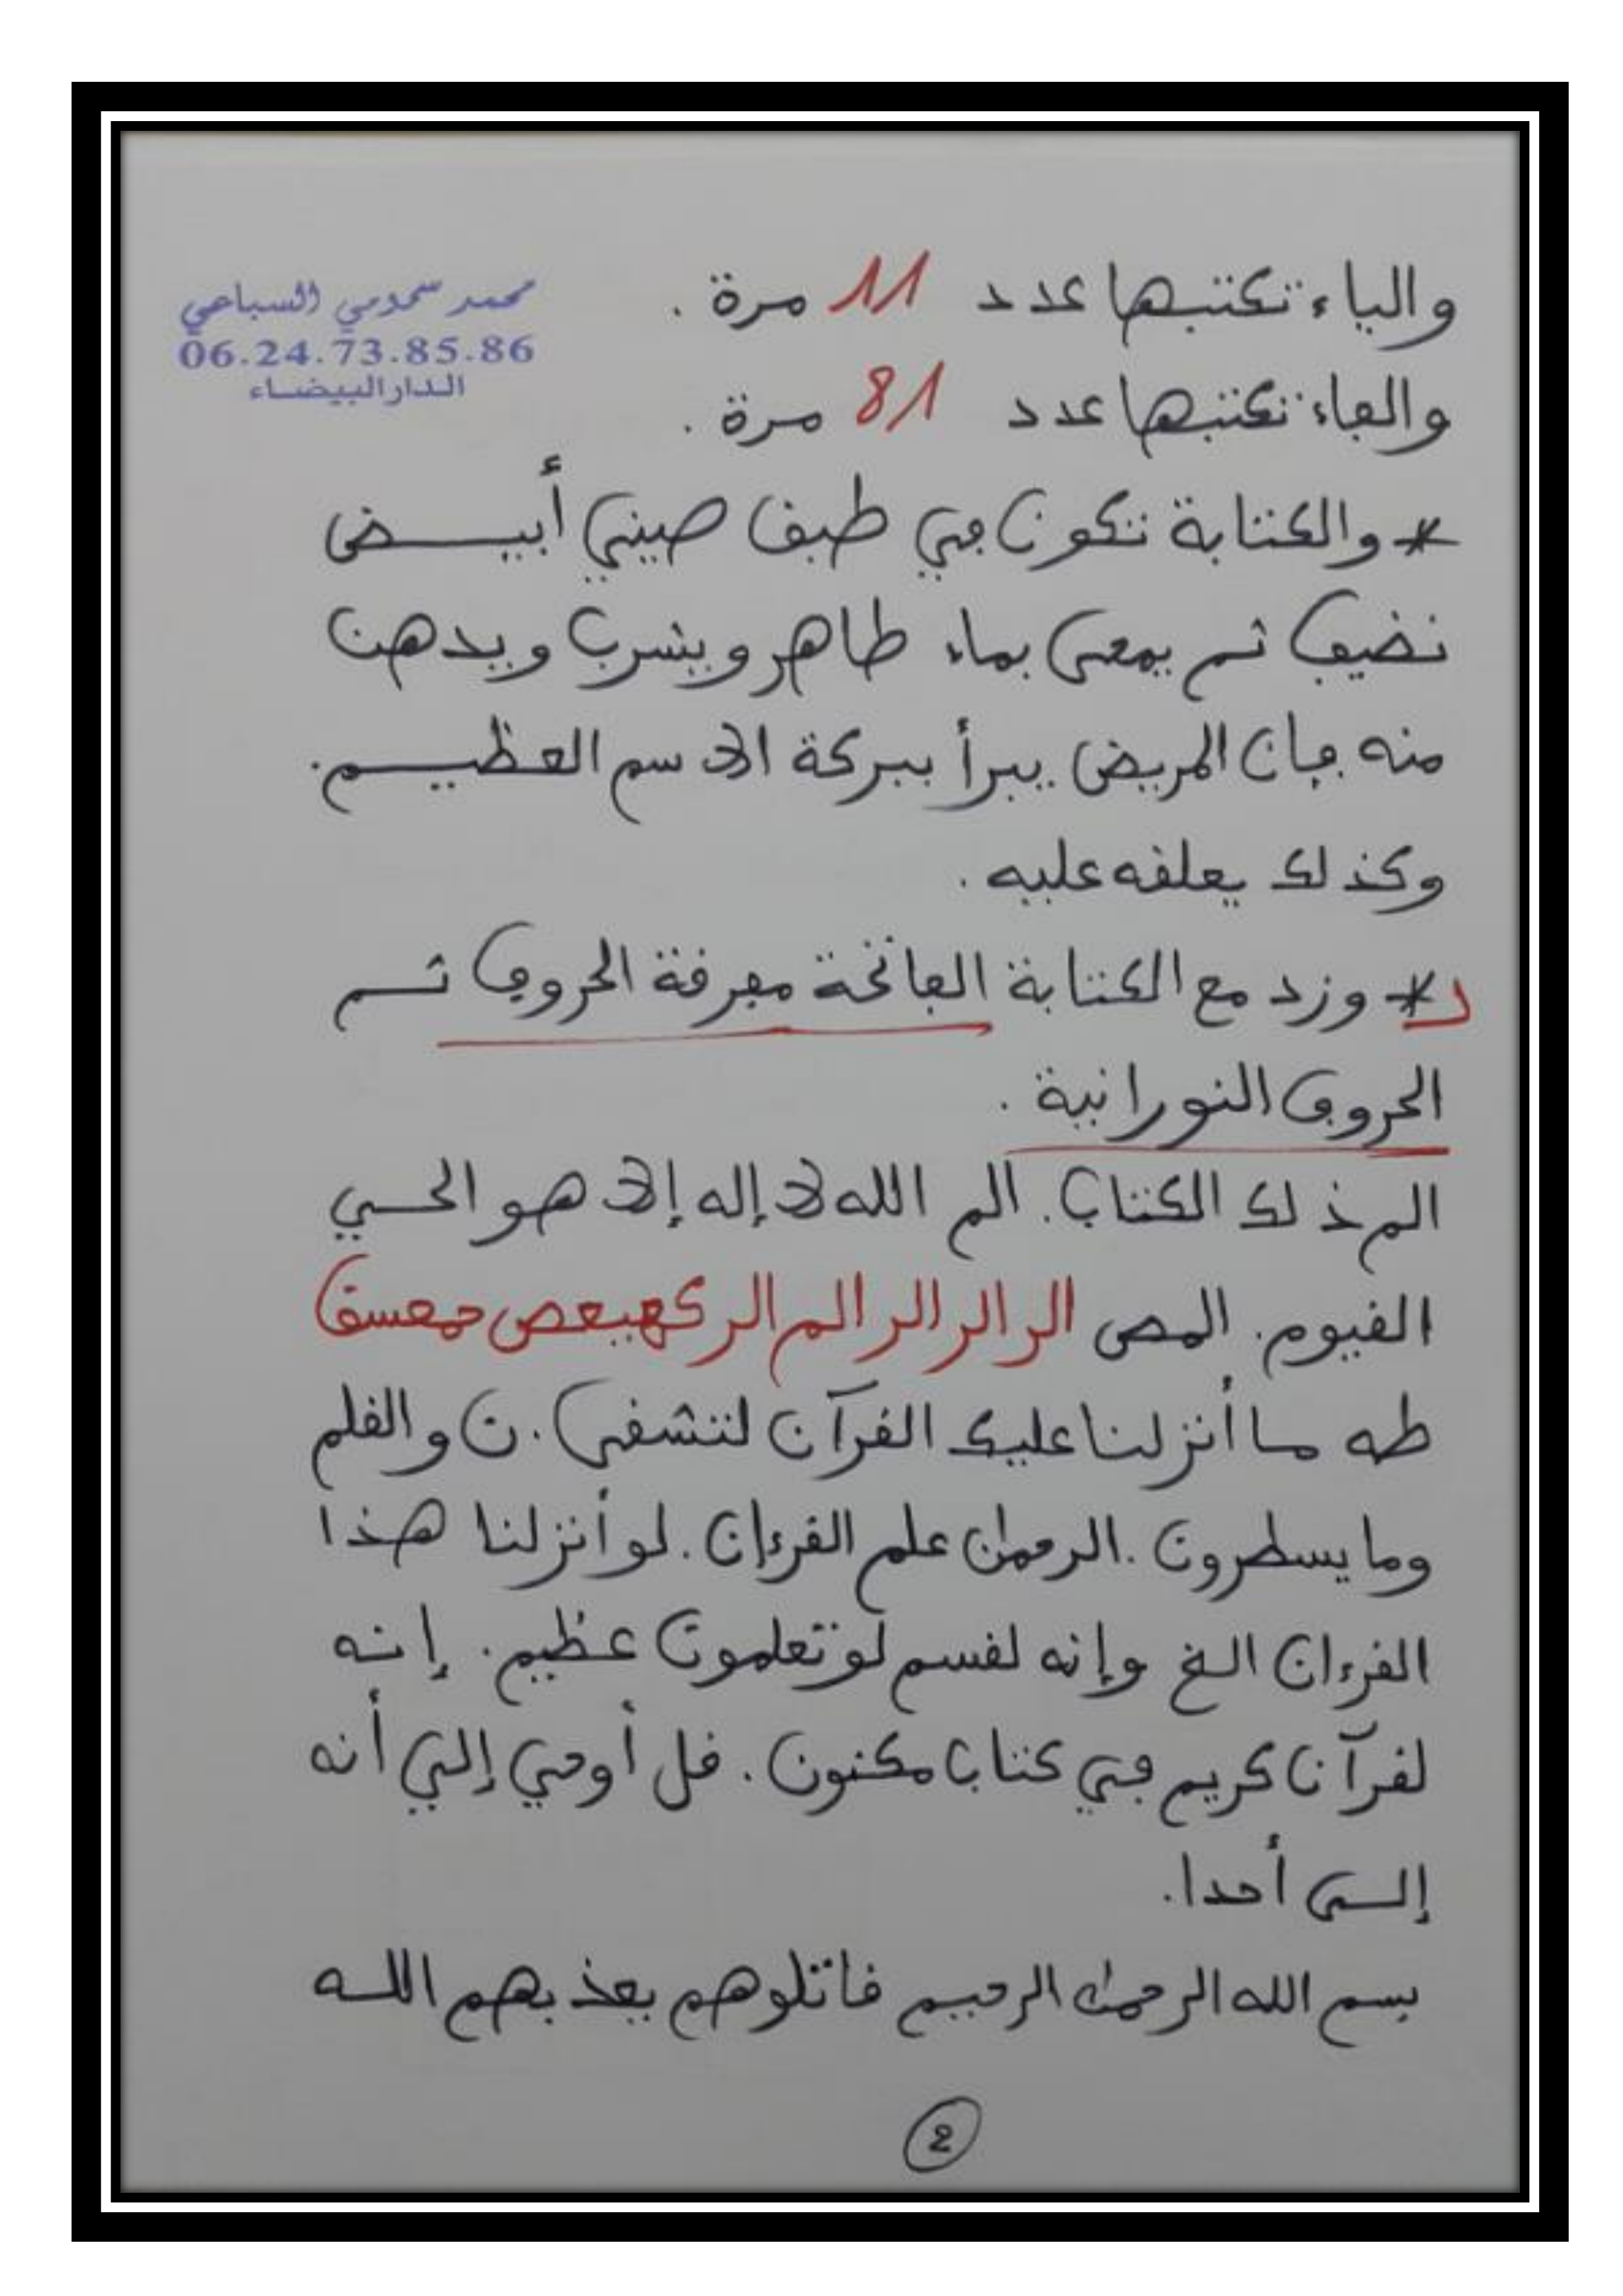 والياء تكتبها عدد 11 مرة .
محمد سحومي السباعي
06.24.73.85.86
الدار البيضاء
والفاء تكتبها عدد 81 مرة .
* والكتابة تكون في طبق صيني أبيــض
نضيف ثم يمحى بماء طاهر ويشرب ويدهن
منه فإن المريض يبرأ ببركة الاسم العظيــم.
وكذلك يعلقه عليه .
* وزد مع الكتابة الفاتحة مفرقة الحروف ثــم
الحروف النورانية .
الم ذلك الكتاب. الم الله لا إله إلا هو الحــي
القيوم. المص الر الر الر المر الر كهيعص حمعسق
طه مــا أنزلنا عليك القرآن لتشقى. ن والقلم
وما يسطرون. الرحمان علم القرءان. لو أنزلنا هذا
القرءان الخ وإنه لقسم لو تعلمون عظيم. إنــه
لقرآن كريم في كتاب مكنون. قل أوحي إلي أنه
إلــى أحدا.
بسم الله الرحمان الرحيم قاتلوهم يعذبهم اللــه
2